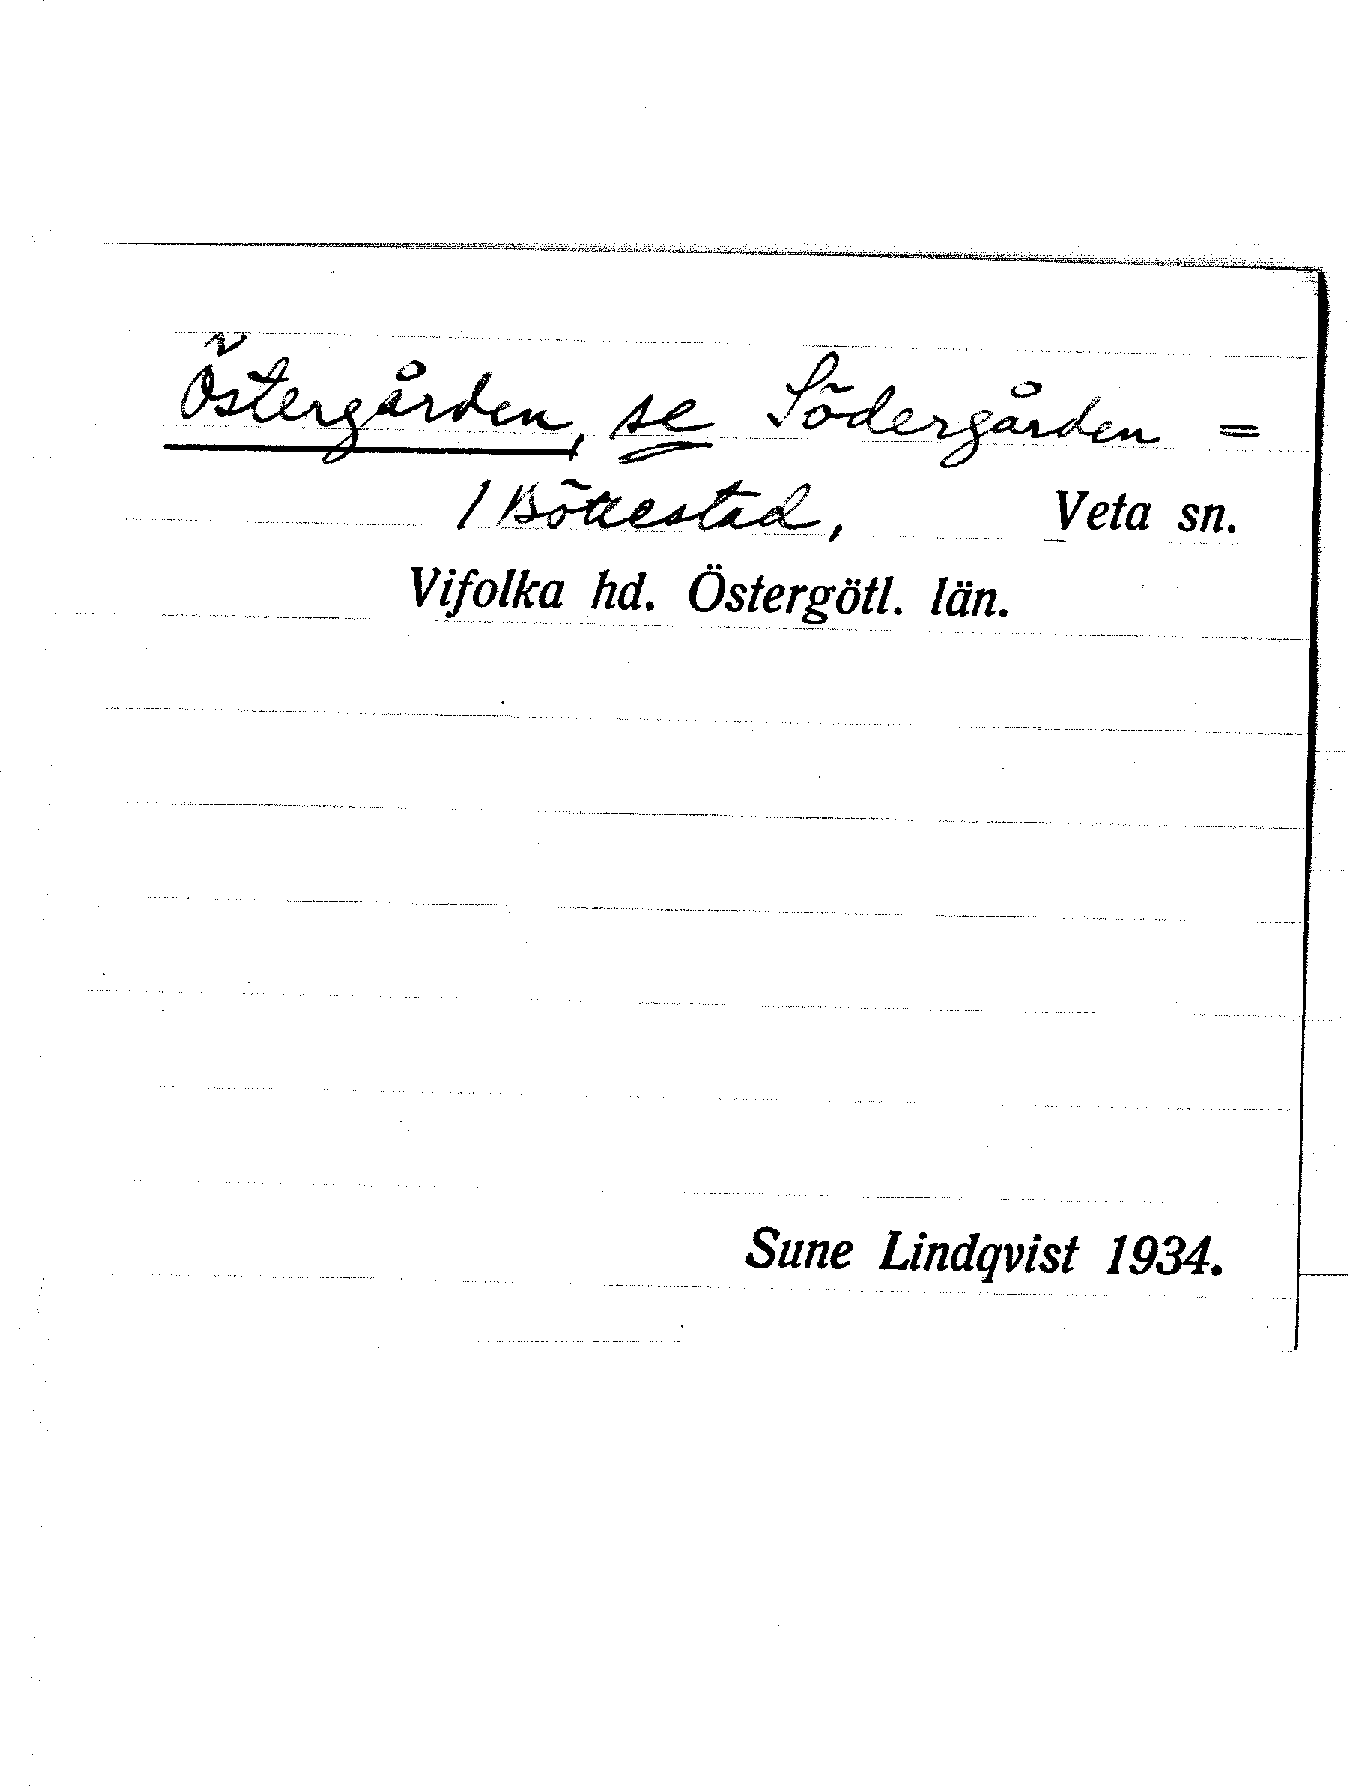 Östergården, se Södergården =
1 Böttestad, Veta sn.
Vifolka hd. Östergötl. län.
Sune Lindqvist 1934.